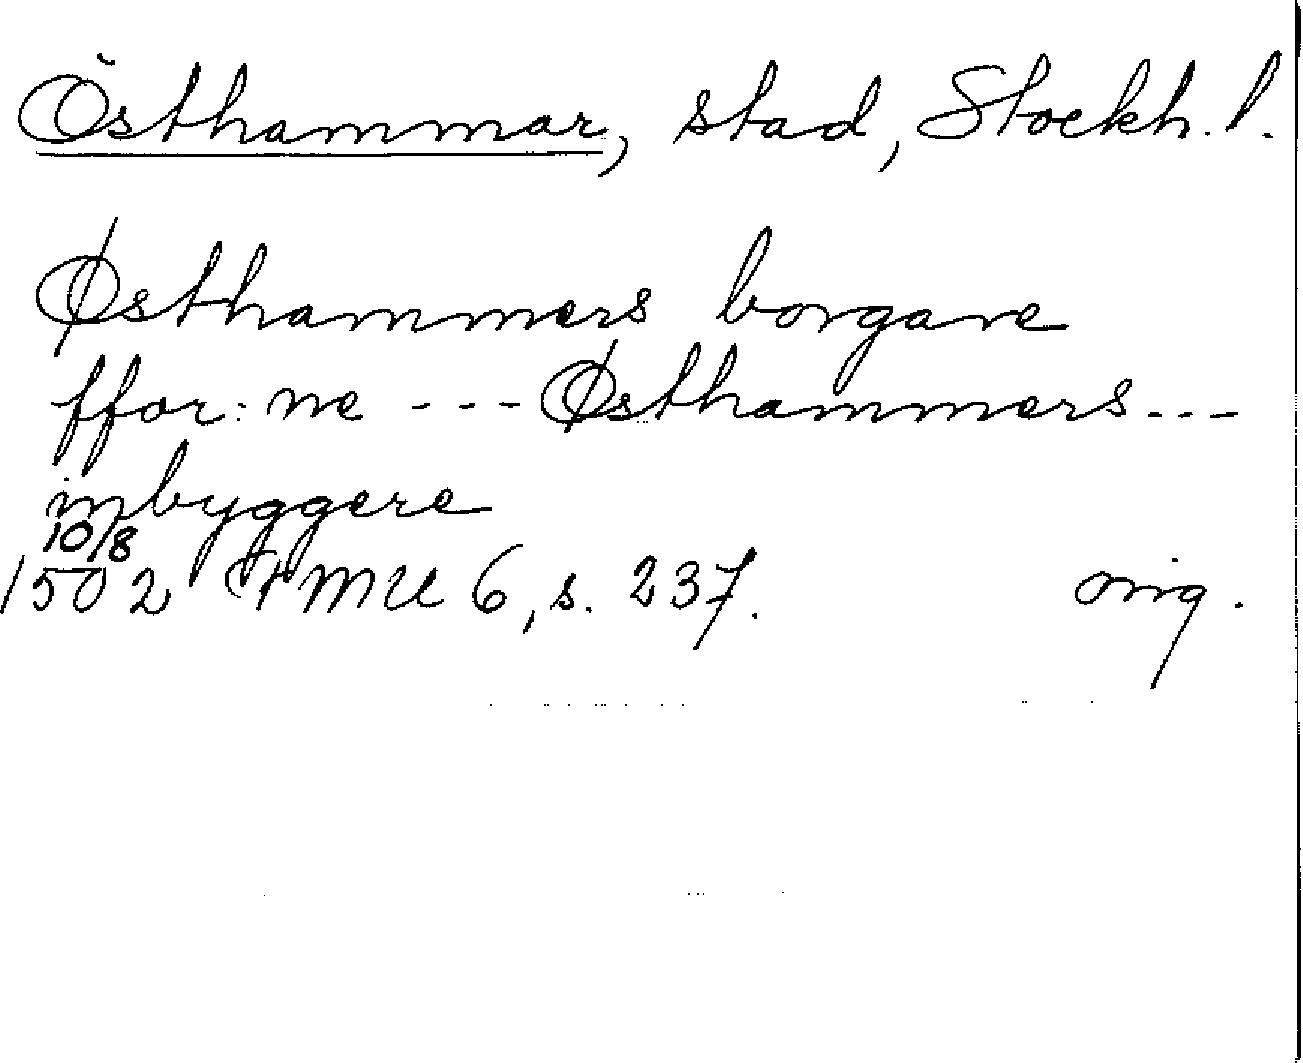 Östhammar, stad, Stockh. l.
Østhammers borgare
ffor: ne --- Østhammers ---
inbyggere
10/8
1502 FMU 6, s. 237. orig.